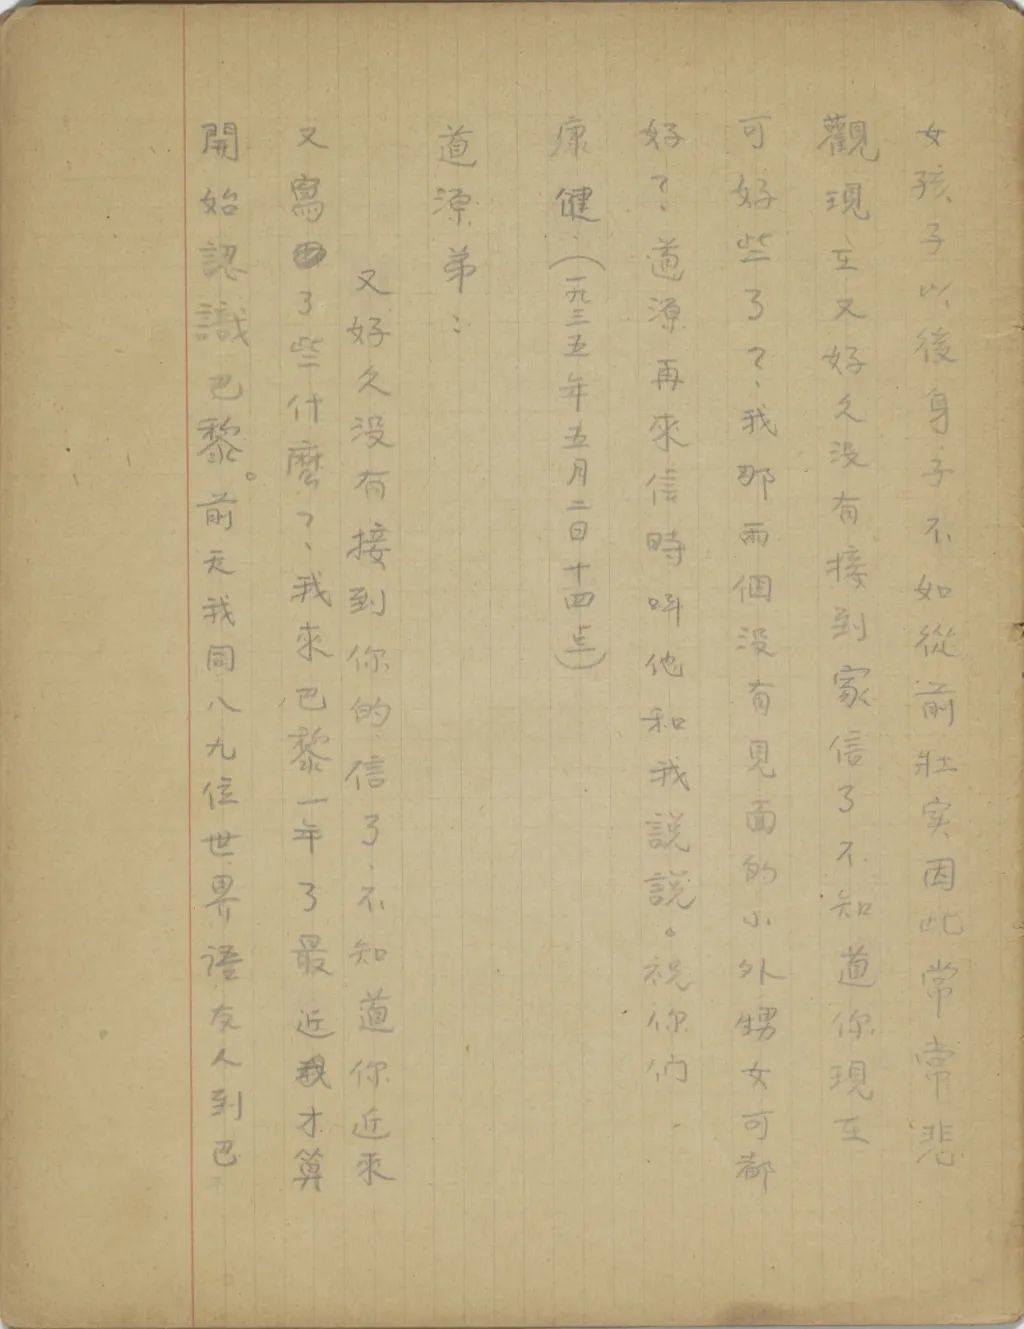 女孩子以後身子不如從前壯实因此常常悲
觀現在又好久没有接到家信了不知道你現在
可好些了？我那两個没有見面的小外甥女可都
好？道源再來信時呌他和我說說。祝你們
康健.(一九三五年五月二日十四点)
道源弟：
又好久没有接到你的信了.不知道你近來
又寫了些什麽？我來巴黎一年了最近我才算
開始認識巴黎。前天我同八九位世界語友人到巴